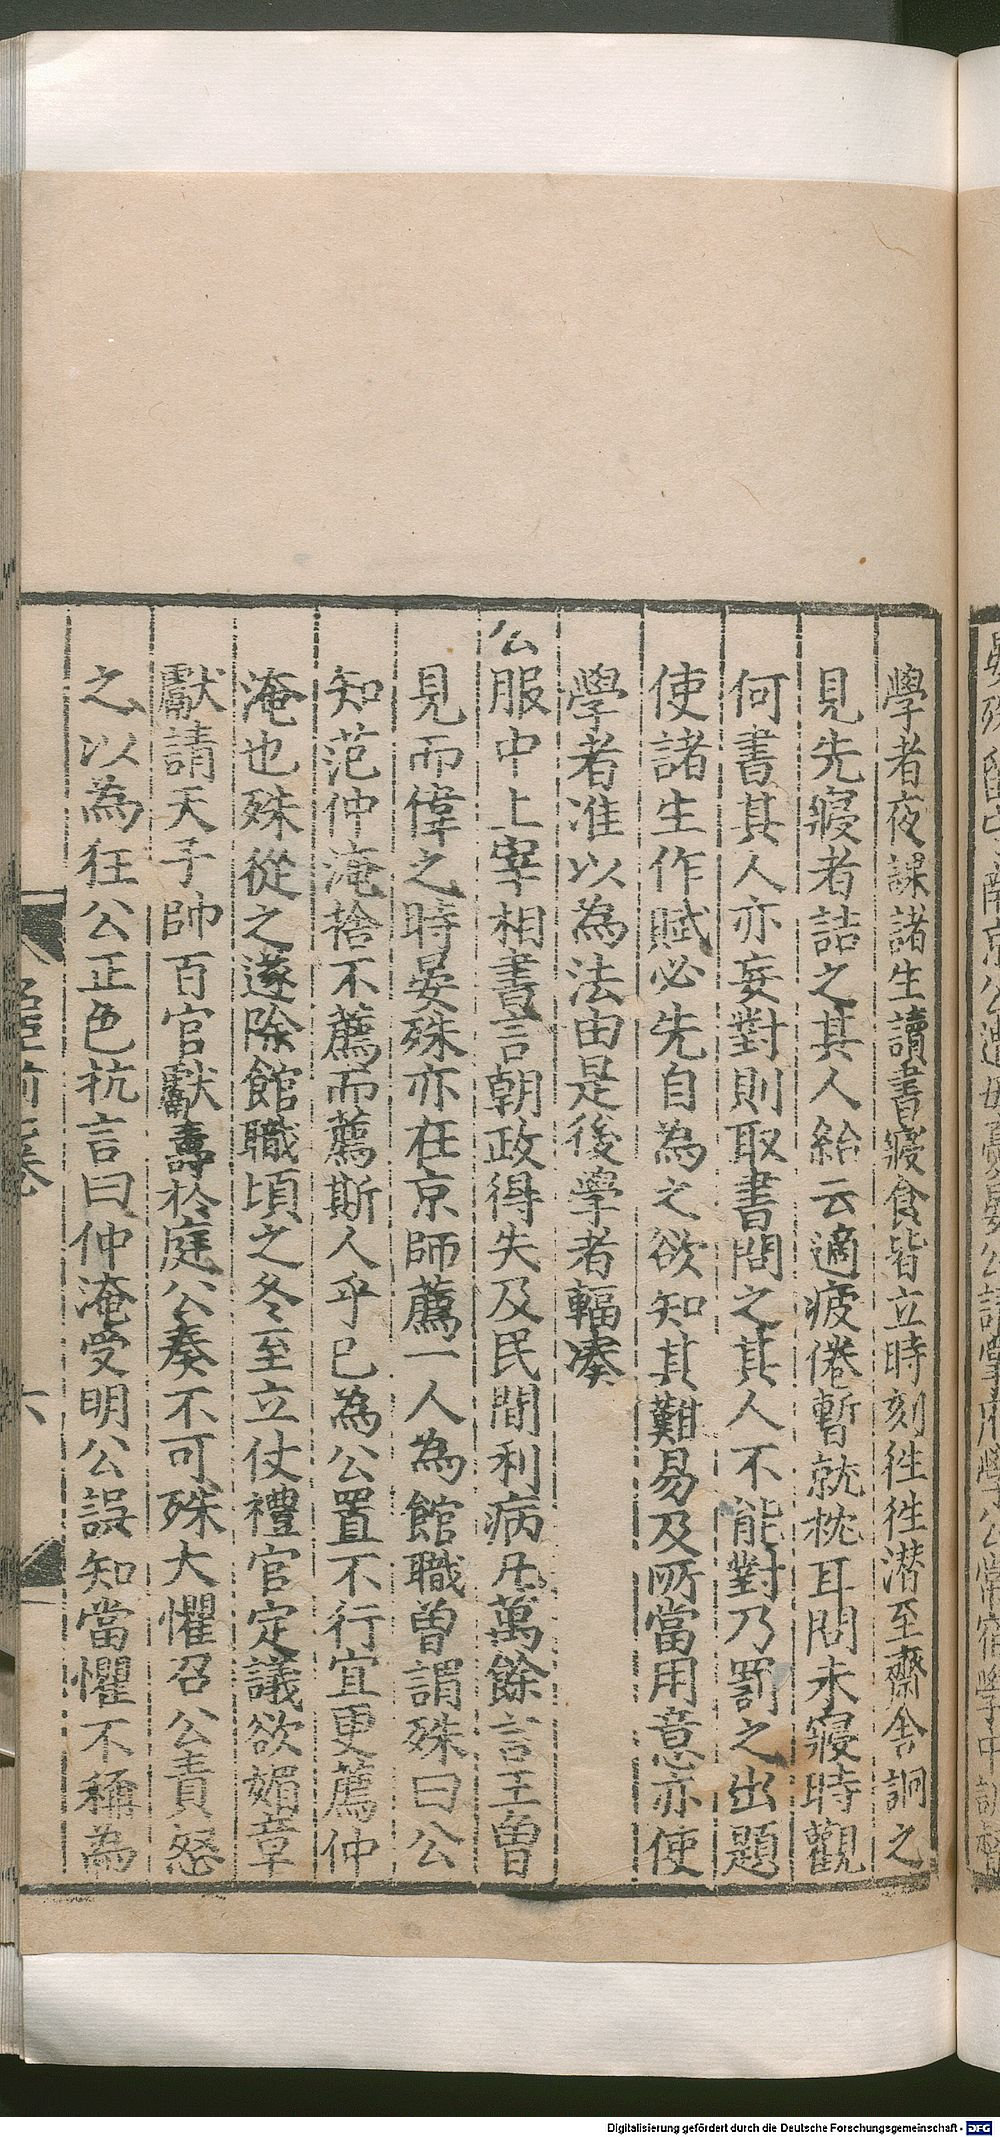 學者夜課諸生讀書寢食皆立時刻徃徃潜至齋舍詗之
見先寢者詰之其人紿云適疲倦暫就枕耳問未寢時觀
何書其人亦妄對則取書問之其人不能對乃罰之出題
使諸生作賦必先自為之欲知其難易及所當用意亦使
學者准以為法由是後學者輻湊
公服中上宰相書言朝政得失及民間利病凡萬餘言王曾
見而偉之時晏殊亦在京師薦一人為館職曾謂殊曰公
知范仲淹捨不薦而薦斯人乎已為公置不行宜更薦仲
淹也殊從之遂除館職頃之冬至立仗禮官定議欲媚章
獻請天子帥百官獻壽於庭公奏不可殊大懼召公責怒
之以為狂公正色抗言曰仲淹受明公誤知當懼不稱為
六
Digitalisierung gefördert durch die Deutsche Forschungsgemeinschaft - DFG